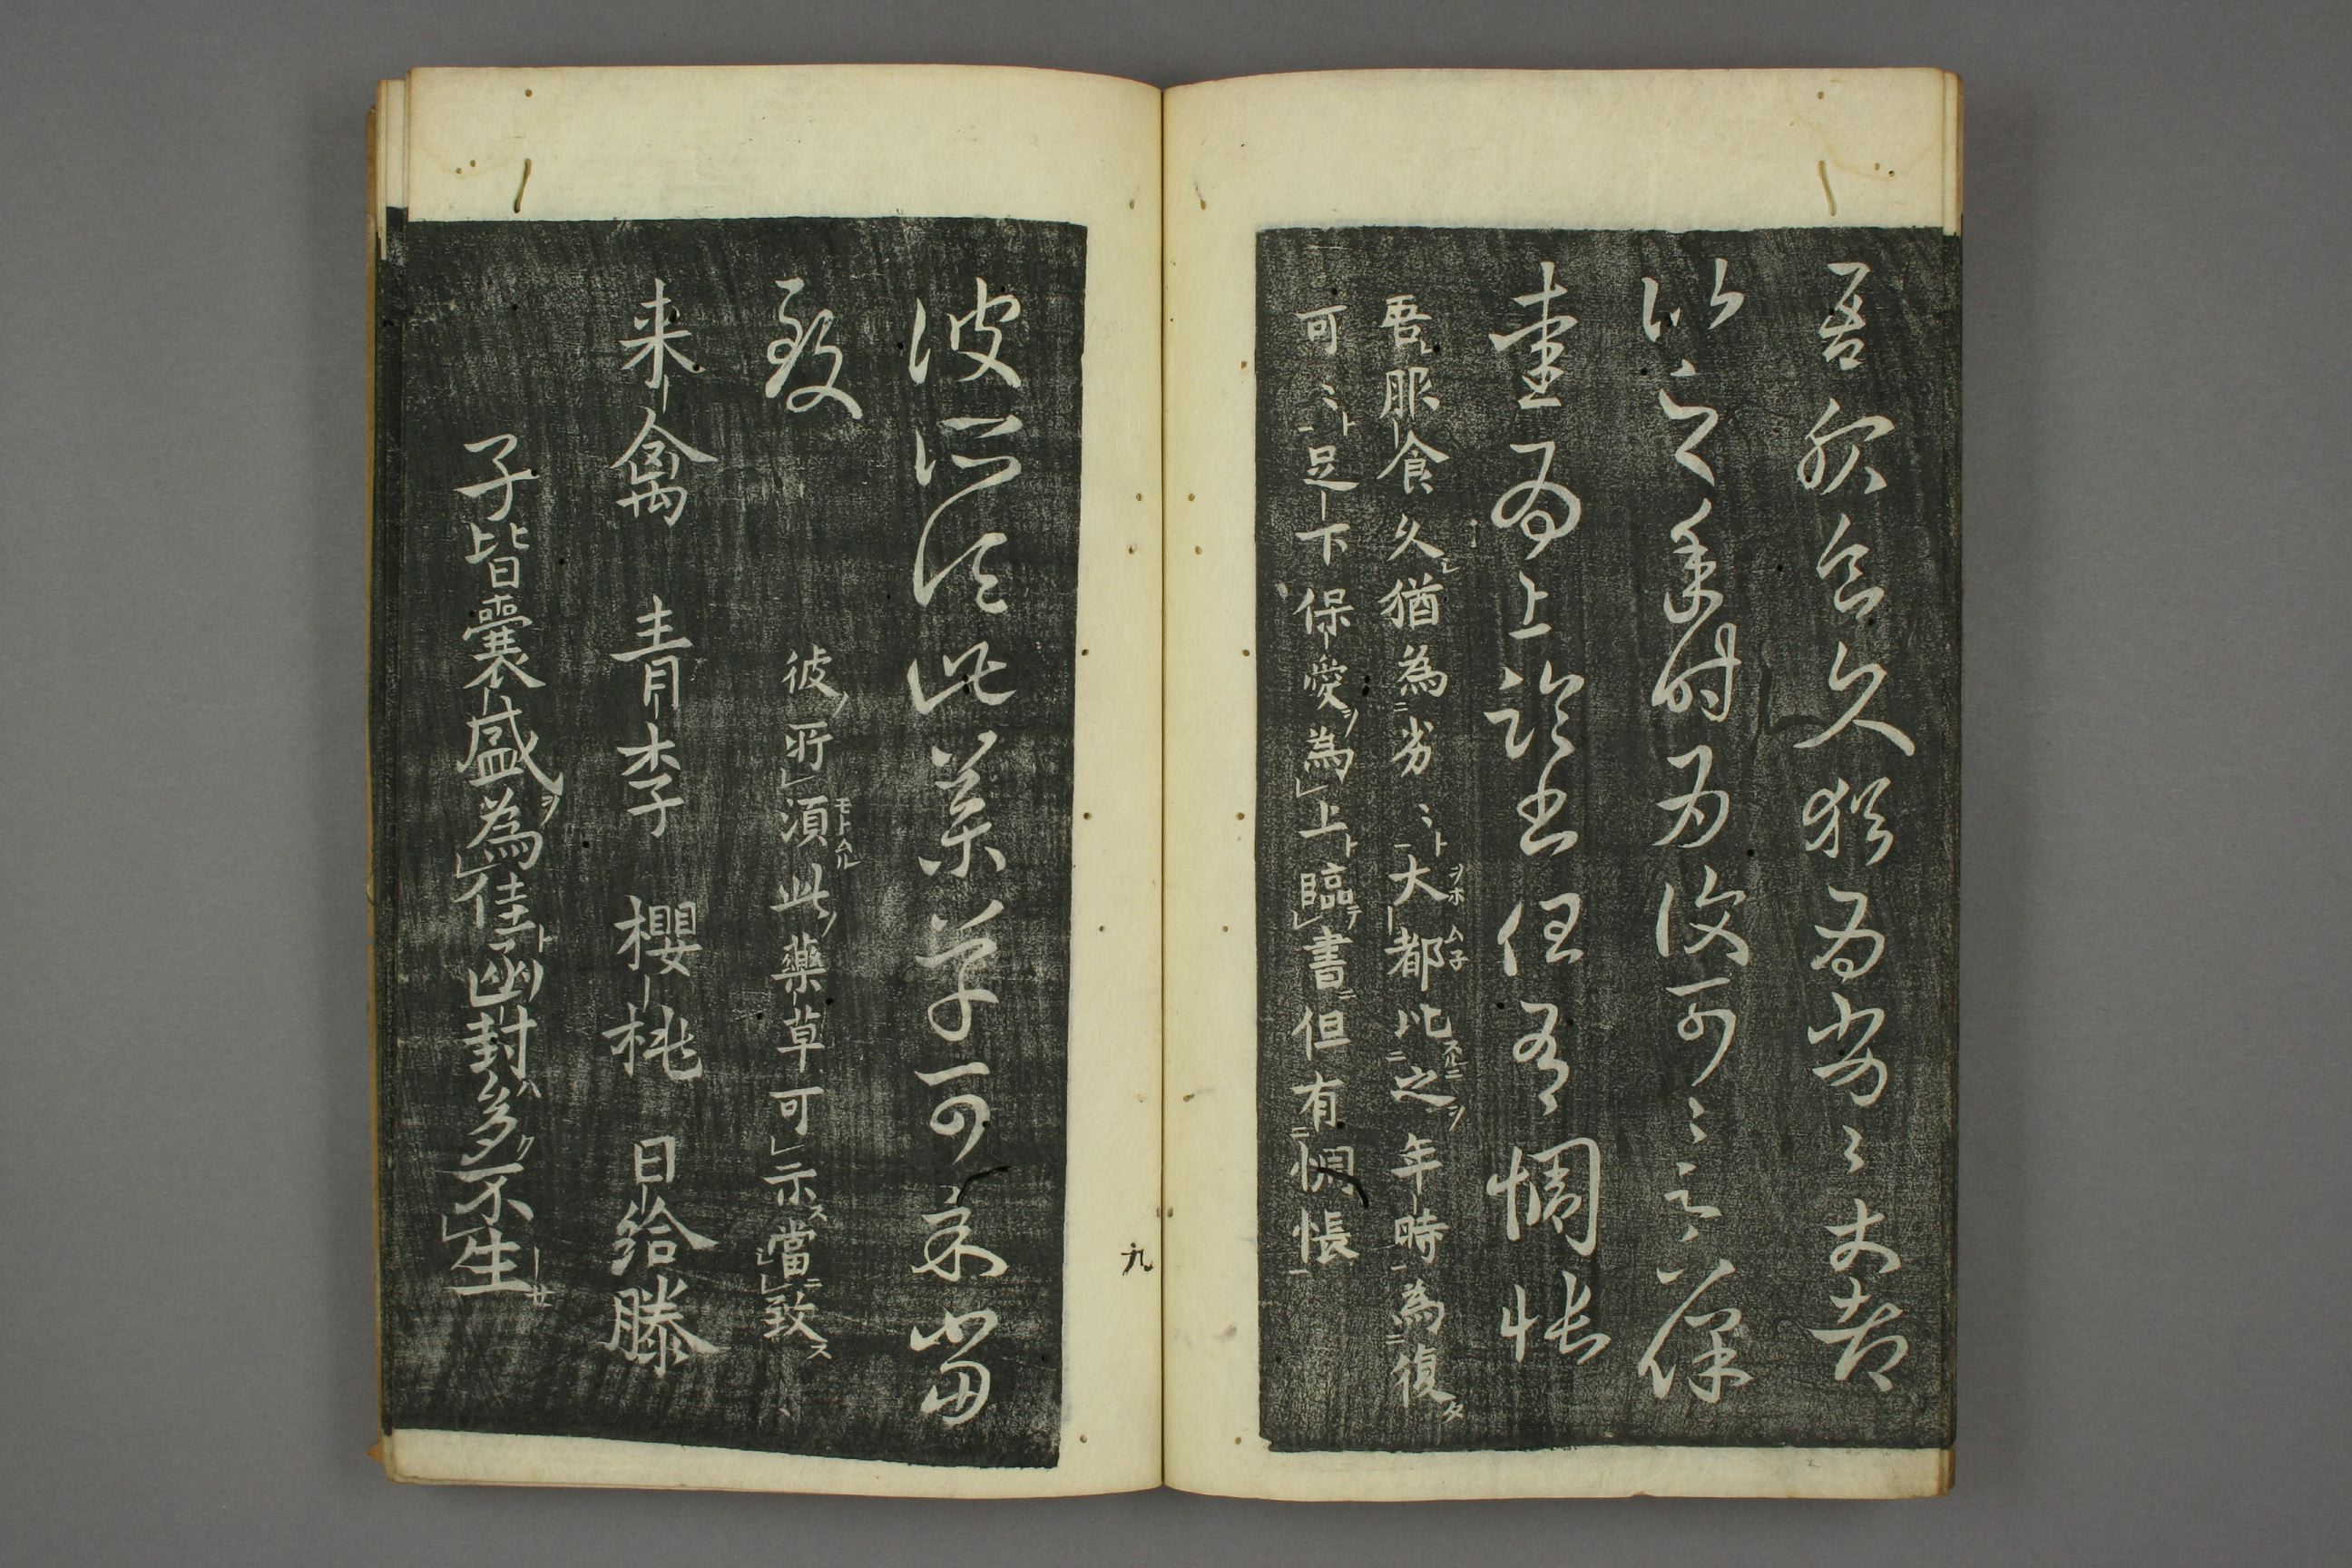 吾服食久猶為劣〻大都
比之年時為復可〻足下保
愛為上臨書但有惆悵
吾服食久猶為劣〻大都比之年時為復
可〻足下保愛為上臨書但有惆悵
九
彼所須此藥草可示當
致
彼所須此藥草可示當致
来禽 青李 櫻桃 日給滕
子皆囊盛為佳函封多不生